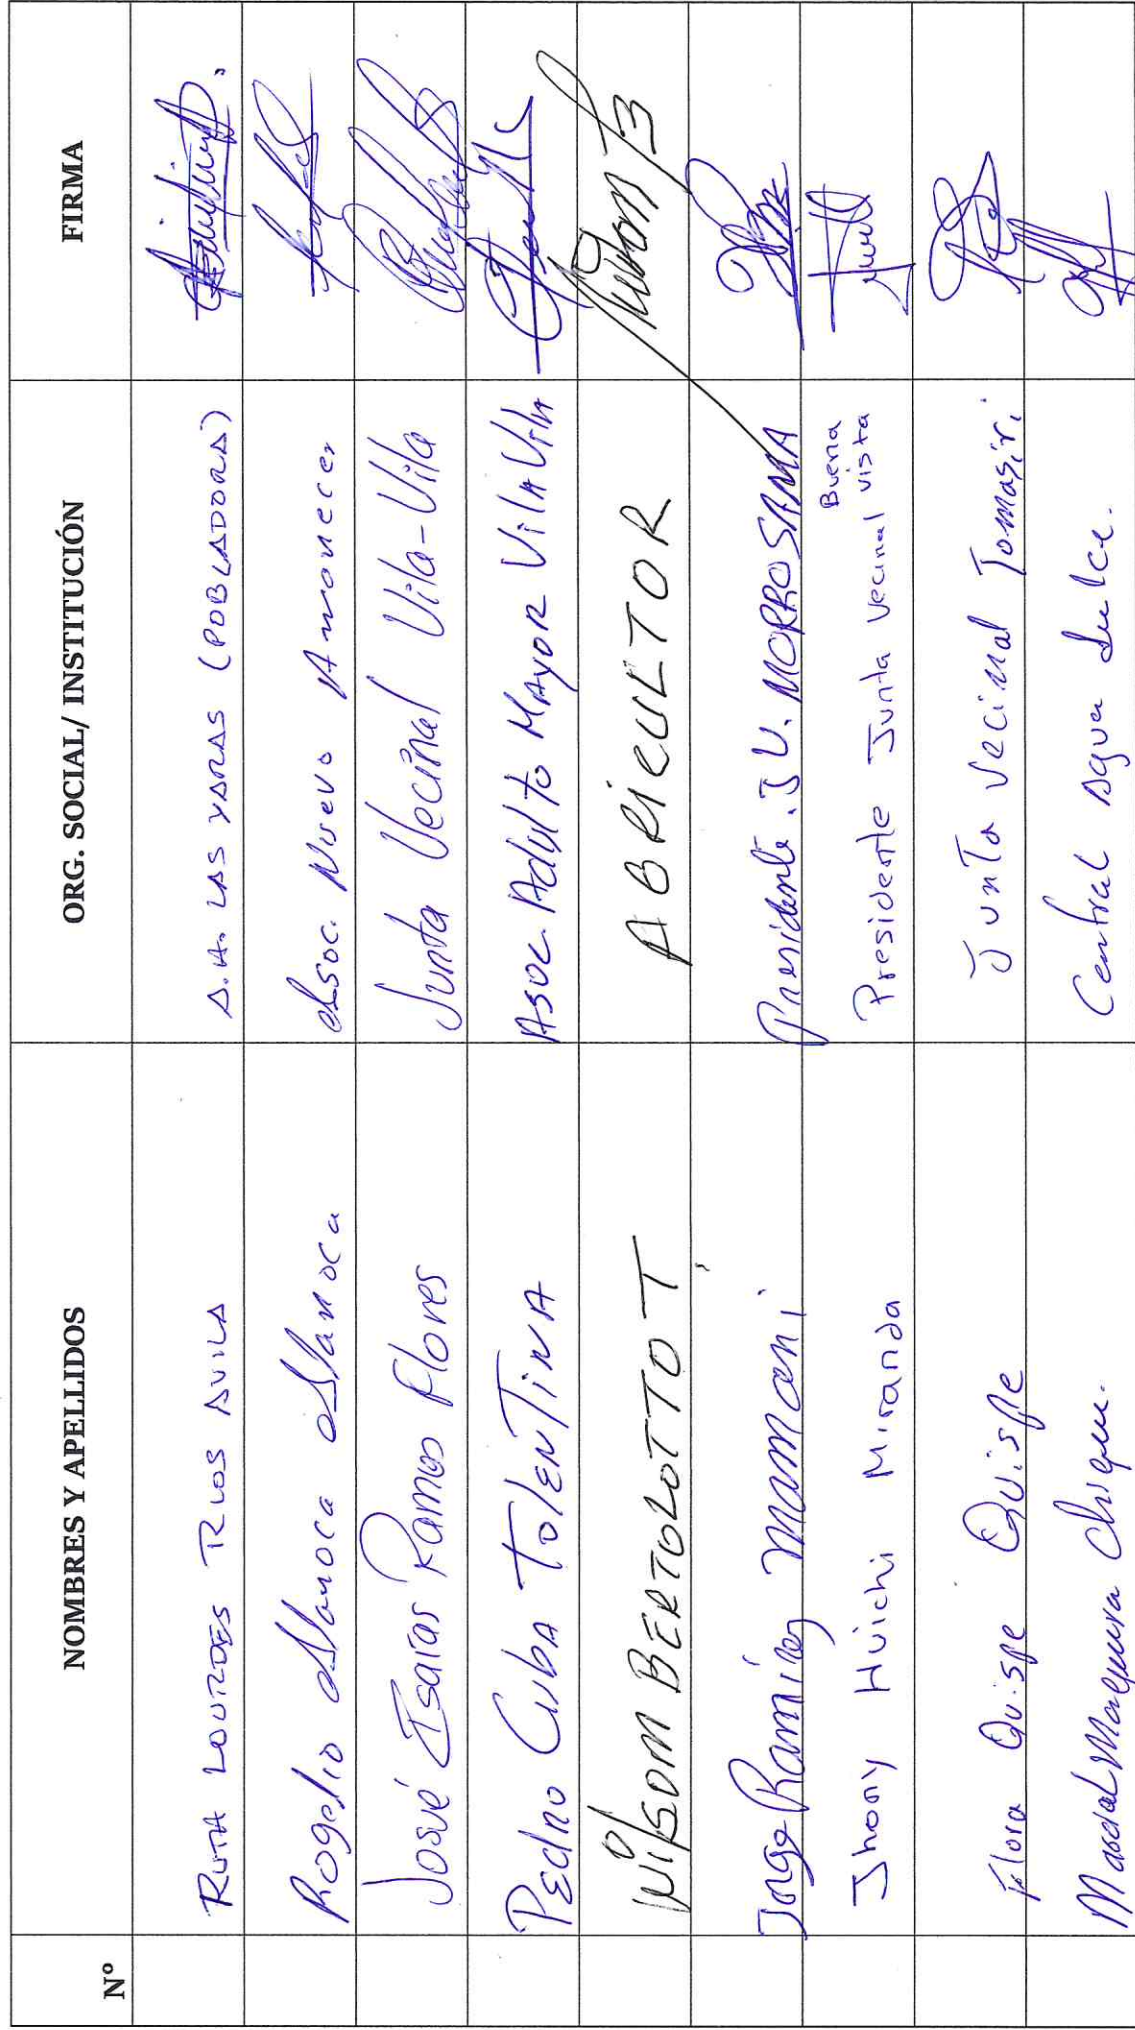 Nº NOMBRES Y APELLIDOS ORG. SOCIAL/ INSTITUCIÓN FIRMA
RUTH LOURDES RIOS AVILA A.H. LAS YARAS (POBLADORA)
Rogelio Llanoca Asoc. Nuevo Amanecer
José Isaías Ramos Flores Junta Vecinal Vila-Vila
PEDRO CUBA TOLENTINA ASOC. Adulto MAYOR VilA VilA
WilSOM BERTOLOTTO T ABRICULTOR
Jorge Ramirez mamani Presidente. J V. MORRO SAMA
Jhony Huichi Miranda Presidente Junta Vecinal Buena vista
Flora Quispe Quispe Junta vecinal Tomasiri
Maquera Central Agua Dulce.